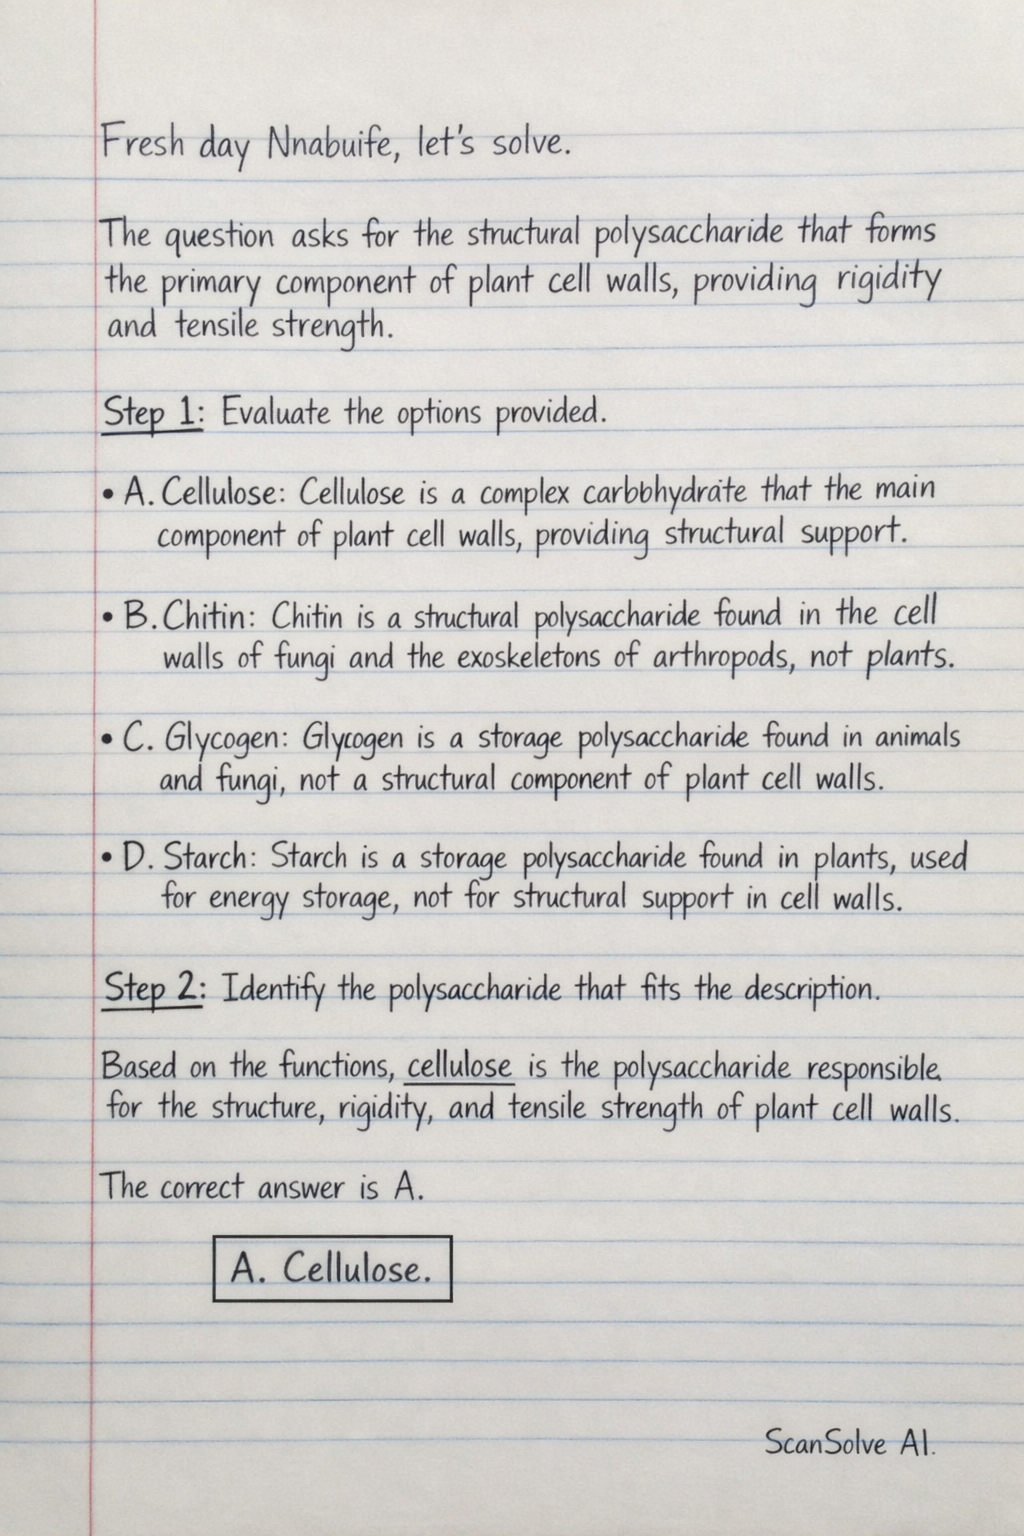 Fresh day Nnabuife, let's solve.
The question asks for the structural polysaccharide that forms
the primary component of plant cell walls, providing rigidity
and tensile strength.
Step 1: Evaluate the options provided.
• A. Cellulose: Cellulose is a complex carbbhydrate that the main
component of plant cell walls, providing structural support.
• B. Chitin: Chitin is a structural polysaccharide found in the cell
walls of fungi and the exoskeletons of arthropods, not plants.
• C. Glycogen: Glycogen is a storage polysaccharide found in animals
and fungi, not a structural component of plant cell walls.
• D. Starch: Starch is a storage polysaccharide found in plants, used
for energy storage, not for structural support in cell walls.
Step 2: Identify the polysaccharide that fits the description.
Based on the functions, cellulose is the polysaccharide responsible
for the structure, rigidity, and tensile strength of plant cell walls.
The correct answer is A.
A. Cellulose.
ScanSolve AI.